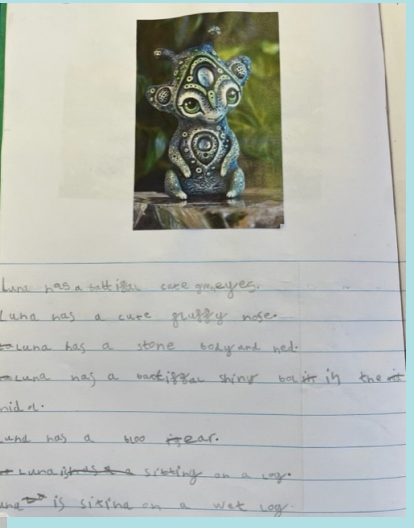 Luna has a cute eyes.
Luna has a cute gluffy nose.
Luna has a stone body and hed.
Luna has a shiny in the
midol.
Luna has a bloo ear.
Luna is sitting on a log.
is siting on a wet log.